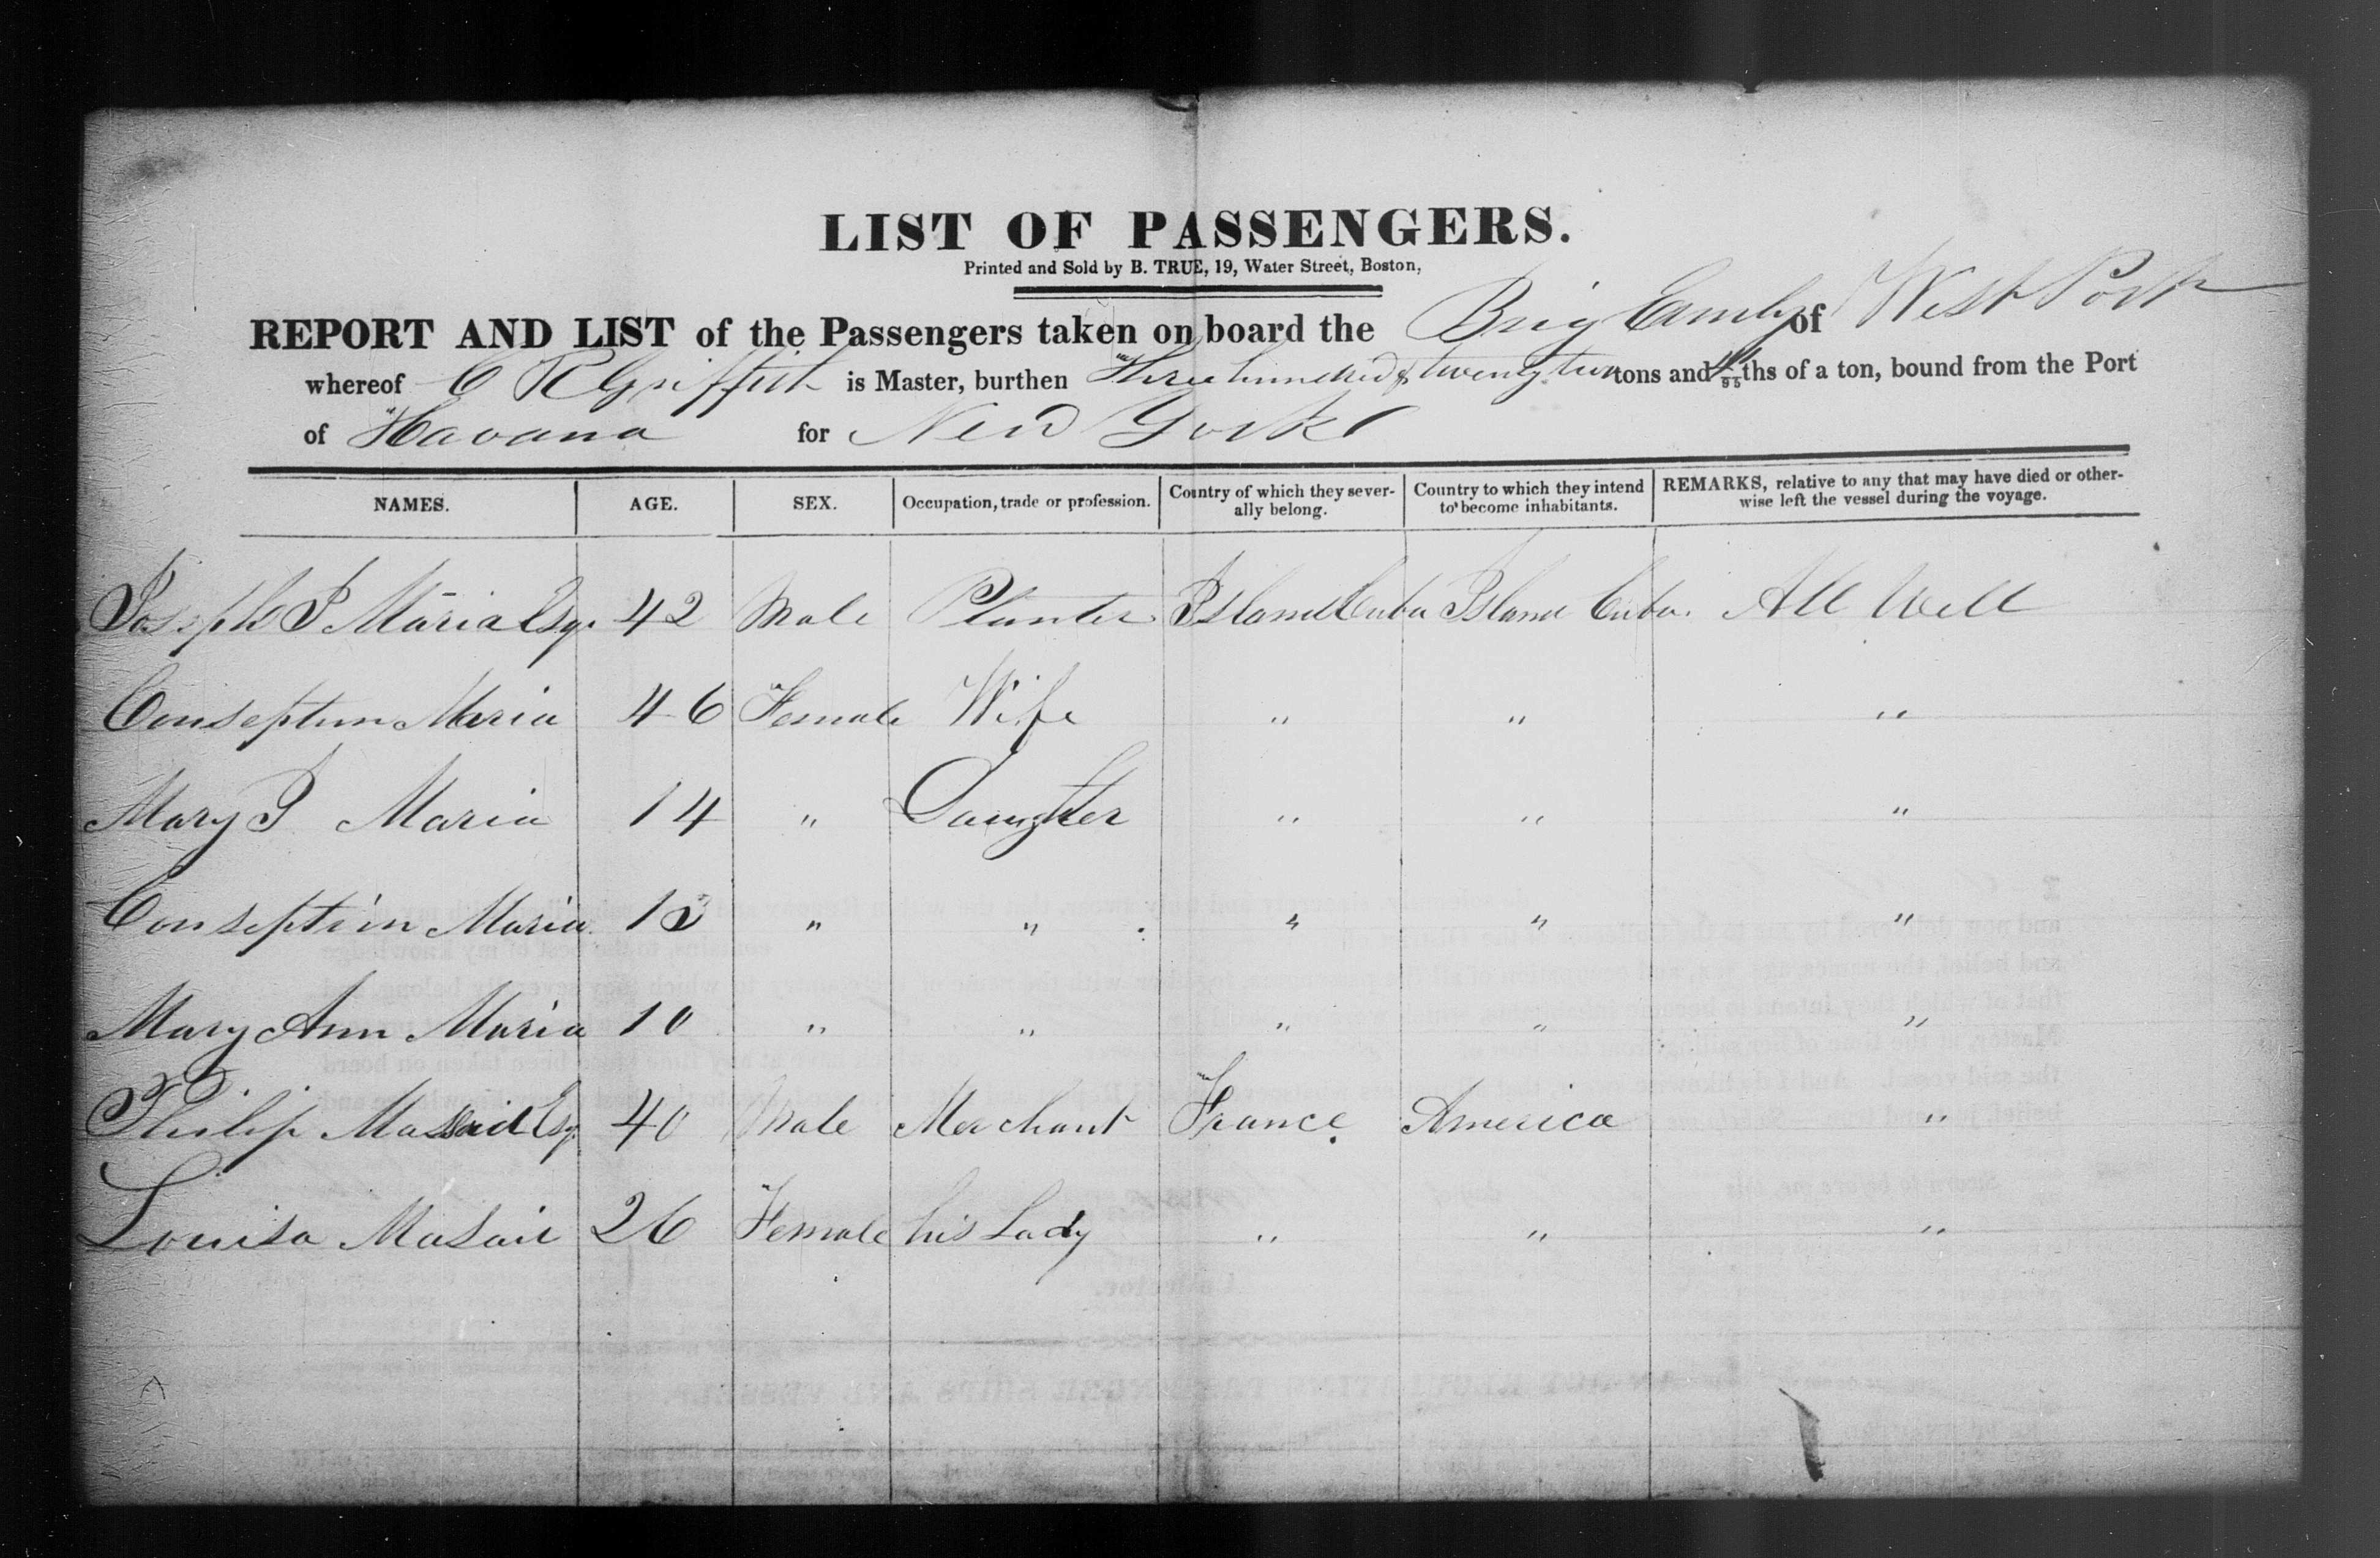 LIST OF PASSENGERS.
Printed and Sold by B. TRUE, 19, Water Street, Boston,
REPORT AND LIST of the Passengers taken on board the Brig Emily of West Port
whereof C R Griffith is Master, burthen Three hundred & twenty two tons and /95 ths of a ton, bound from the Port
of Havana for New York
NAMES. AGE. SEX. Occupation, trade or profession. Country of which they severally belong. Country to which they intend to become inhabitants. REMARKS, relative to any that may have died or otherwise left the vessel during the voyage.
Joseph P Maria Esqr 42 Male Planter Island Cuba Island Cuba. All Well
Conseptun Maria 46 Female Wife " " "
Mary P Maria 14 " Daughter " " "
Conseption Maria 13 " " " " "
Mary Ann Maria 10 " " " " "
Philip Esqr 40 Male Merchant France America "
Louisa 26 Female his Lady " " "